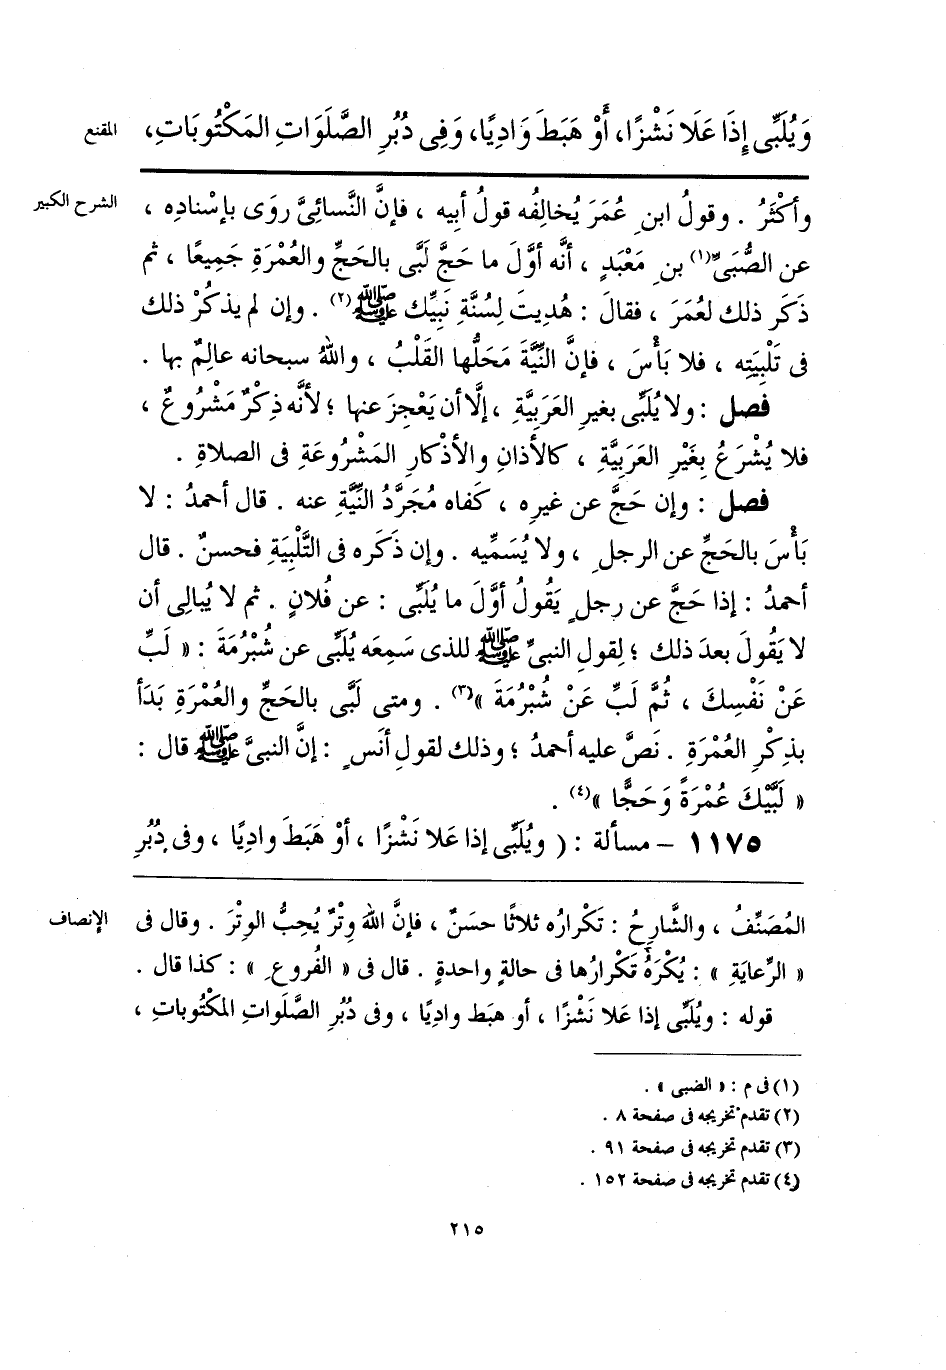 وَيُلَبِّى إِذَا عَلَا نَشْزًا، أَوْ هَبَطَ وَادِيًا، وَفِى دُبُرِ الصَّلَوَاتِ المَكْتُوبَاتِ،
المقنع
وأكْثَرُ . وقولُ ابنِ عُمَرَ يُخالِفُه قولُ أبيه ، فإنَّ النَّسائِىَّ روَى بإسْنادِه ،
الشرح الكبير
عن الصُّبَىِّ(١) بنِ مَعْبَدٍ ، أنَّه أوَّلَ ما حَجَّ لَبَّى بالحَجِّ والعُمْرَةِ جَمِيعًا ، ثم
ذَكَر ذلك لعُمَرَ ، فقالَ : هُدِيتَ لِسُنَّةِ نَبِيِّك ﷺ(٢) . وإن لم يذكُرْ ذلك
فى تَلْبِيَتِه ، فلا بَأْسَ ، فإنَّ النِّيَّةَ مَحَلُّها القَلْبُ ، واللهُ سبحانه عالِمٌ بها .
فصل : ولا يُلَبِّى بغيرِ العَرَبِيَّةِ ، إلَّا أن يَعْجِزَ عنها ؛ لأنَّه ذِكْرٌ مَشْرُوعٌ ،
فلا يُشْرَعُ بِغَيْرِ العَرَبِيَّةِ ، كالأذانِ والأذْكارِ المَشْرُوعَةِ فى الصلاةِ .
فصل : وإن حَجَّ عن غيرِه ، كَفاه مُجَرَّدُ النِّيَّةِ عنه . قال أحمدُ : لا
بَأْسَ بالحَجِّ عن الرجلِ ، ولا يُسَمِّيه . وإن ذَكَره فى التَّلْبِيَةِ فحسنٌ . قال
أحمدُ : إذا حَجَّ عن رجلٍ يَقُولُ أوَّلَ ما يُلَبِّى : عن فُلانٍ . ثم لا يُبالِى أن
لا يَقُولَ بعدَ ذلك ؛ لِقولِ النبىِّ ﷺ للذى سَمِعَه يُلَبِّى عن شُبْرُمَةَ : « لَبِّ
عَنْ نَفْسِكَ ، ثُمَّ لَبِّ عَنْ شُبْرُمَةَ »(٣) . ومتى لَبَّى بالحَجِّ والعُمْرَةِ بَدَأ
بذِكْرِ العُمْرَةِ . نَصَّ عليه أحمدُ ؛ وذلك لقولِ أنَسٍ : إنَّ النبىَّ ﷺ قال :
« لَبَّيْكَ عُمْرَةً وَحَجًّا »(٤) .
١١٧٥ – مسألة : ( ويُلَبِّى إذا عَلا نَشْزًا ، أوْ هَبَطَ وادِيًا ، وفى دُبُرِ
المُصَنِّفُ ، والشَّارِحُ : تَكْرارُه ثلاثًا حسَنٌ ، فإنَّ اللهَ وِتْرٌ يُحِبُّ الوِتْرَ . وقال فى
الإنصاف
« الرِّعايَةِ » : يُكْرَهُ تَكْرارُها فى حالةٍ واحدةٍ . قال فى « الفُروعِ » : كذا قال .
قوله : ويُلَبِّى إذا عَلا نَشْزًا ، أو هبَط وادِيًا ، وفى دُبُرِ الصَّلَواتِ المكْتُوباتِ ،
(١) فى م : « الضبى » .
(٢) تقدم تخريجه فى صفحة ٨ .
(٣) تقدم تخريجه فى صفحة ٩١ .
(٤) تقدم تخريجه فى صفحة ١٥٢ .
٢١٥